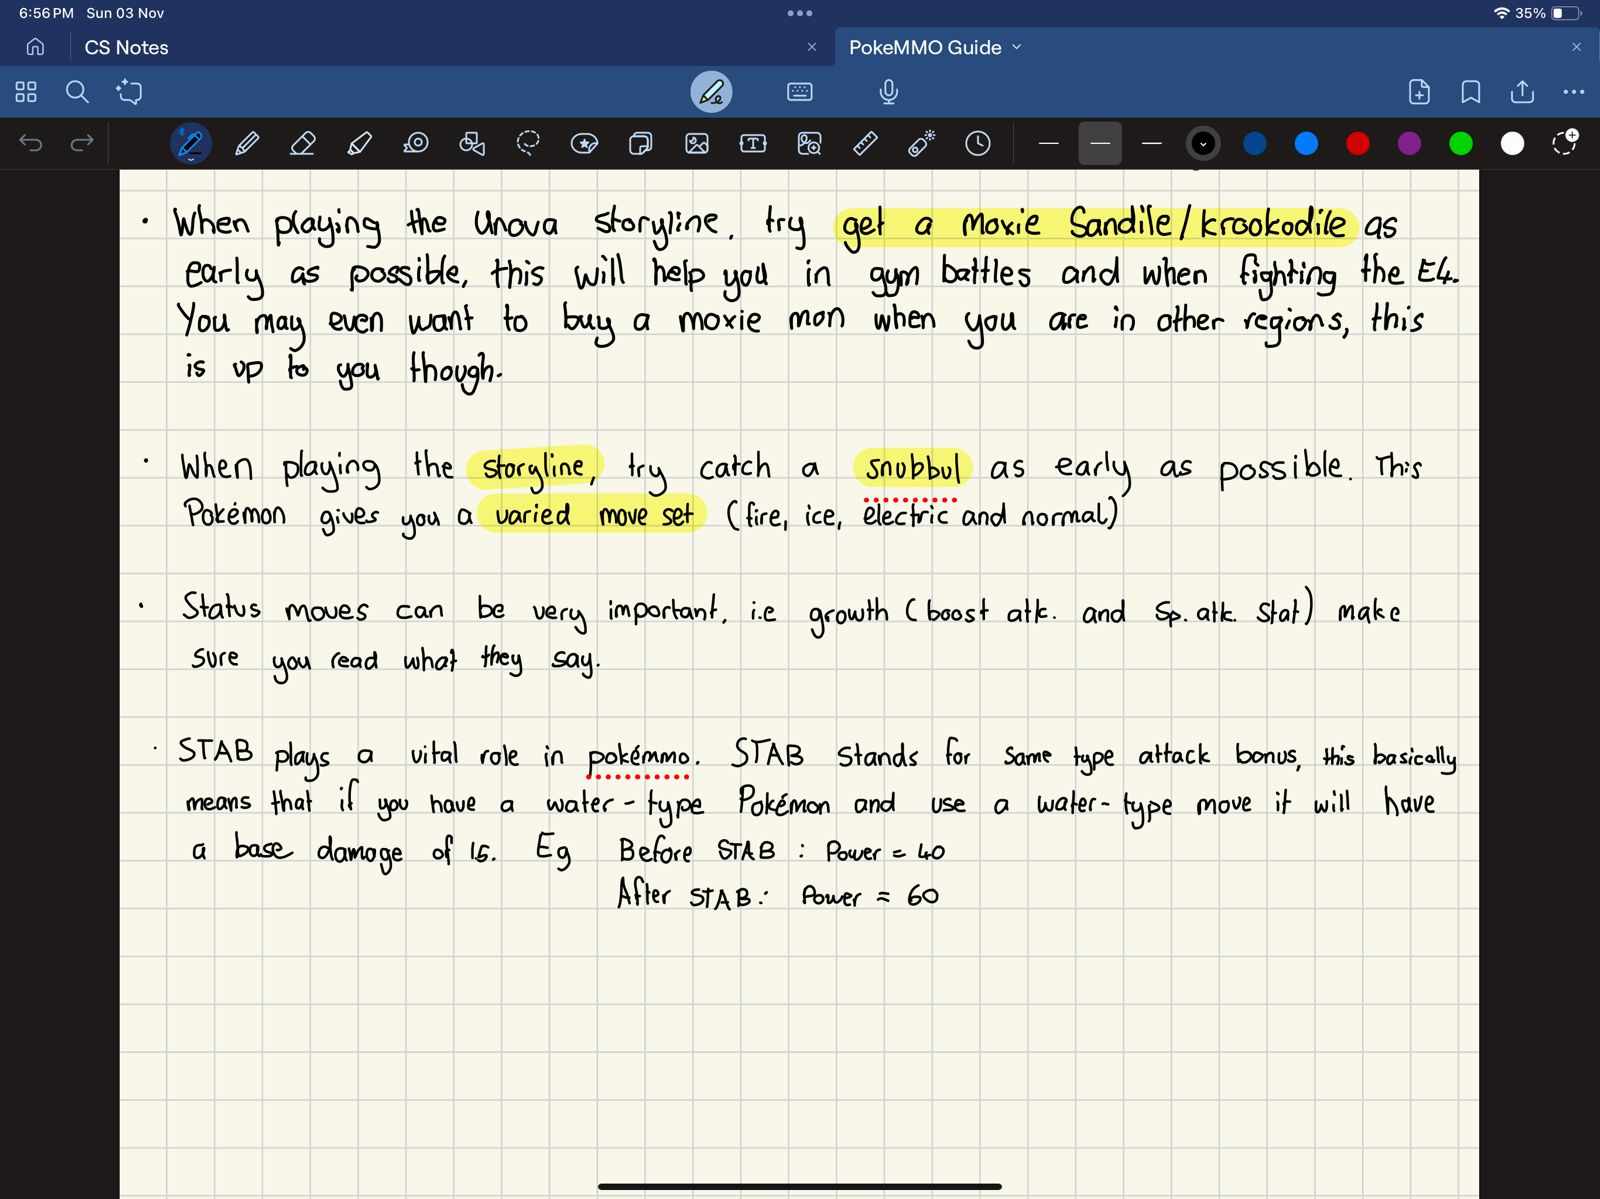 6:56 PM Sun 03 Nov
35%
CS Notes
PokeMMO Guide
· When playing the Unova storyline, try get a moxie Sandile/krookodile as
early as possible, this will help you in gym battles and when fighting the E4.
You may even want to buy a moxie mon when you are in other regions, this
is up to you though.
· When playing the storyline, try catch a snubbul as early as possible. This
Pokémon gives you a varied move set (fire, ice, electric and normal)
· Status moves can be very important, i.e growth (boost atk. and Sp. atk. Stat) make
sure you read what they say.
· STAB plays a vital role in pokémmo. STAB Stands for Same type attack bonus, this basically
means that if you have a water-type Pokémon and use a water-type move it will have
a base damage of 1.5. Eg Before STAB : Power = 40
After STAB: Power = 60